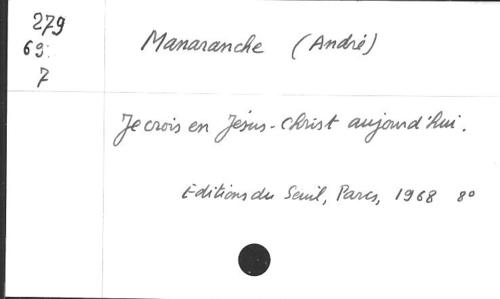 279
69:
7
Manaranche (André)
Je crois en Jésus-Christ aujourd'hui.
Editions du Seuil, Paris, 1968 8o